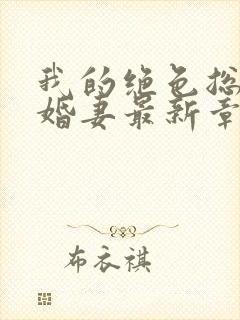 我的绝色总
婚妻最新章
布衣祺